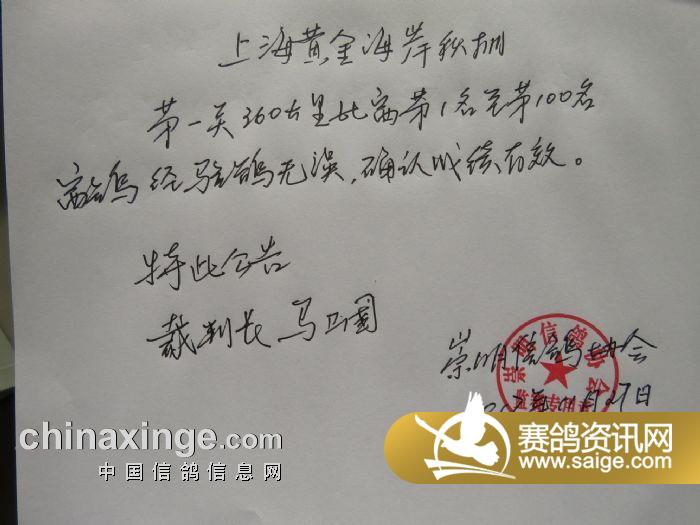 上海黄金海岸秋棚
第一关360公里比赛第1名至第100名
赛鸽经验鸽无误,确认成绩有效。
特此公告
裁判长 马卫国
崇明信鸽协会
月27日
chinaxinge.com
中国信鸽信息网
赛鸽资讯网
www.saige.com